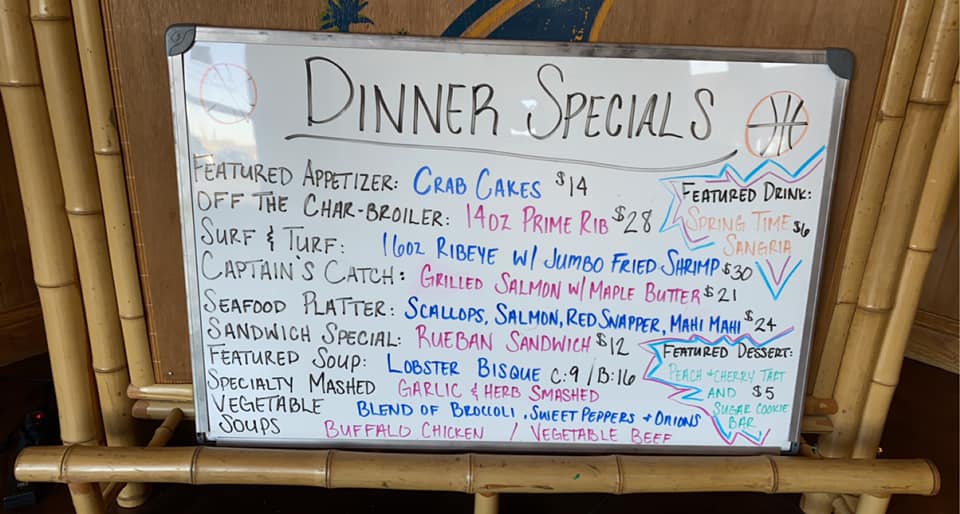 DINNER SPECIALS
FEATURED APPETIZER: CRAB CAKES $14
OFF THE CHAR-BROILER: 14OZ PRIME RIB $28
SURF & TURF: 16OZ RIBEYE W/ JUMBO FRIED SHRIMP $30
CAPTAIN'S CATCH: GRILLED SALMON W/ MAPLE BUTTER $21
SEAFOOD PLATTER: SCALLOPS, SALMON, RED SNAPPER, MAHI MAHI $24
SANDWICH SPECIAL: RUEBAN SANDWICH $12
FEATURED SOUP: LOBSTER BISQUE C:9 / B:16
SPECIALTY MASHED GARLIC & HERB SMASHED
VEGETABLE BLEND OF BROCCOLI, SWEET PEPPERS + ONIONS
SOUPS BUFFALO CHICKEN / VEGETABLE BEEF
FEATURED DRINK:
SPRING TIME $6
SANGRIA
FEATURED DESSERT:
PEACH + CHERRY TART
AND $5
SUGAR COOKIE
BAR